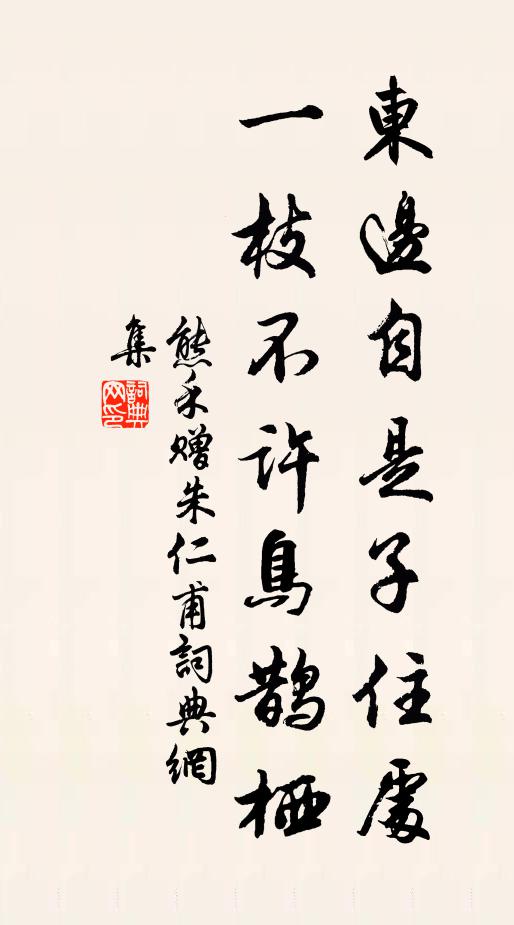 東邊自是子住處
一枝不許烏鵲栖
熊禾贈朱仁甫詞典網
集
詞典
网印